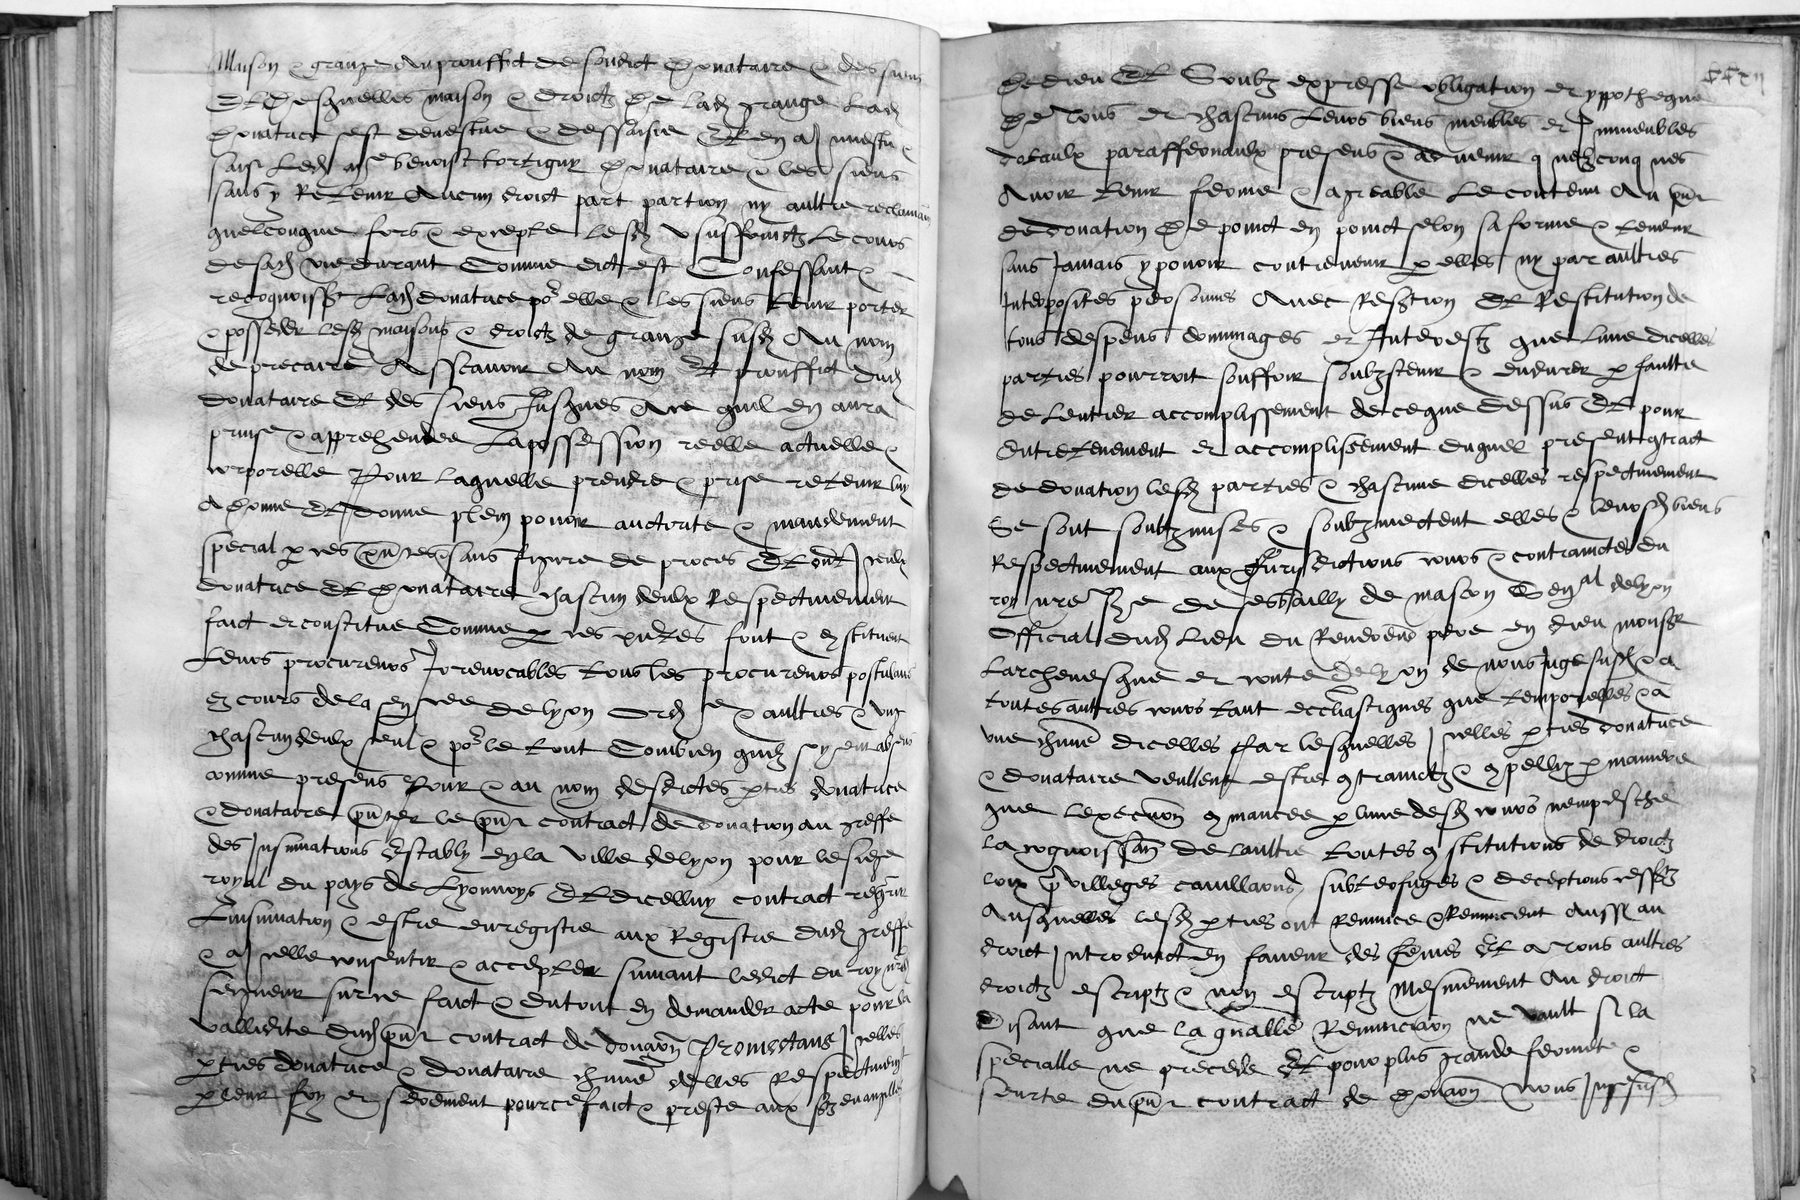 Maison & grange au prouffict de sondict donataire & des siens
Et desquelles maison & droictz de lad grange lad
donatrice sest devestue & dessaisie Et en a investu &
saisi led benoist tortigny donataire & les siens
sans y Retenir Aucun droict part portion ny aultre reclamation
quelconque fors & excepte lesd usuffruictz le cours
de sad vie durant Comme dict est Confessant &
recognoiss lad donatrice po elle & les siens tenir porter
& posseder lesd maisons & droictz de grange susd Au nom
de precaire Asscavoir Au nom Et prouffict dud
donataire Et des siens Jusques Ace quil en aura
prinse & apprehendee La possession reelle actuelle &
corporelle Pour laquelle prendre & prise retenir luy
A donne Et donne plein povoir auctorite & mandement
special p ces pntes sans figure de proces Et ont Iceulx
donatrice Et donataire chascun deulx Respectivement
faict et constitue Comme p ces pntes font & constituent
Leurs procureurs Irrevocables tous les procureurs postulans
es cours de la sen cee de lyon ord re & aultres & ung
chascun deulx seul & po le tout Combien quilz soyent absens
comme presens Pour & au nom desdictes pties donatrice
& donataire pnter le pnt contract de donation au greffe
des Insinuations Estably en la ville de lyon pour le siege
royal du pays de Lyonnoys Et dicelluy contract reqrir
Linsinuation & estre enregistre aux Registre dud greffe
& a Icelle consentir & accepter suivant ledict du roy nre
seigneur sur ce faict & du tout en demander acte pour la
vallidite dud pnt contract de donaon Promectans Icelles
pties donatrice & donataire chune delles Respectivemt
p leur foy et serement pource faict & preste aux s evangilles
de dieu Et Soubz expresse obligation et ypothecque
De tous et chascuns Leurs biens meubles et Immeubles
dotaulx paraffernaulx presens & advenir q uelzconq ues
Avoir tenir ferme & agreable Le contenu Au pnt
de donation De poinct en poinct selon sa forme & teneur
sans Jamais y povoir contrevenir p elles ny par aultres
Interposites personnes Avec Reffection Et Restitution de
tous despens dommages et Interestz que lune dicelles
parties pourroit souffrir soubzstenir & endurer p faulte
de lentier accomplissement de ce que dessus Et pour
Entretenement et accomplissement duquel present contract
de donation lesd parties & chascune dicelles respectivement
Se sont soubzmises & soubzmectent elles & leursd biens
Respectivement aux Jurisdictions cours & contrainctes du
roy nre s e de es bailly de mascon Sen al de lyon
Official dud Lieu du Reverend pere en dieu monsr
Larchevesque et conte de lyon de nous Juge susd & a
toutes autres cours tant ecclesiastiques que temporelles & a
une chune dicelles Par lesquelles Icelles pties donatrice
& donataire veullent estre contrainctz & compellez p maniere
que lexecution commancee p lune desd cours nempesche
La cognoissan de laultre toutes constitutions de droictz
loix privilleges cavillaons subterfuges & deceptions cessans
Ausquelles lesd pties ont Renunce & Renuncent Aussi au
droict Introduict en faveur des femes Et a tous aultres
droictz escriptz & non escriptz Mesmement Au droict
Disant que la gnalle Renunciaon ne vault si la
specialle ne precede Et pour plus grande fermete &
seurte du pnt contract de donaon Nous Juge susd